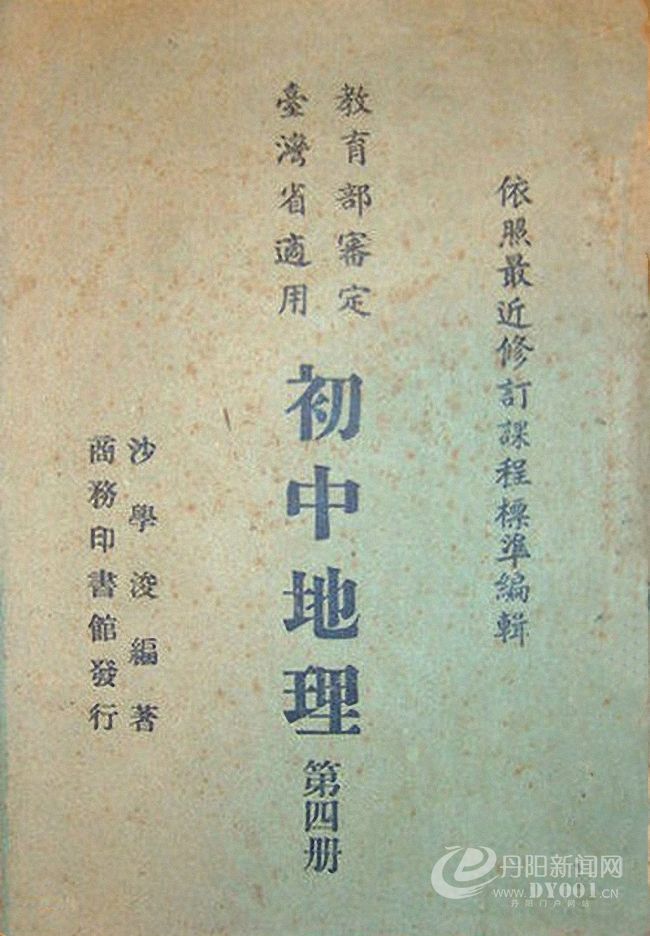 依照最近修訂課程標準編輯
教育部審定
臺灣省適用
初中地理 第四册
沙學浚編著
商務印書館發行
丹阳新闻网
www.DY001.CN
丹阳门户网站